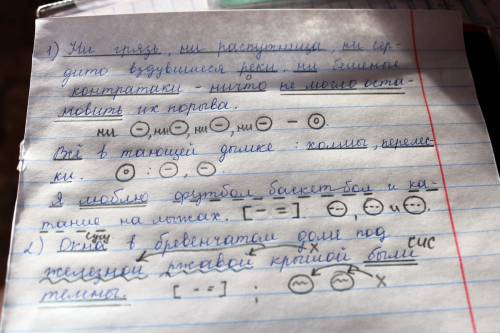 1) Ни грязь, ни распутница, ни сер-
дито вздувшиеся реки, ни бешеные
контратаки - ничто не могло оста-
новить их порыва.
ни ⊖, ни ⊖, ни ⊖, ни ⊖ - ⊙
Всё в тающей дымке: холмы, перелес-
ки. ⊙ : ⊖, ⊖.
Я люблю футбол, баскетбол и ка-
тание на лыжах. [- =]. ⊖, ⊖ и ⊖.
сущ
2) Окна в бревенчатом доме под
x сис
железной ржавой крышой были
темны. [- =] ; x